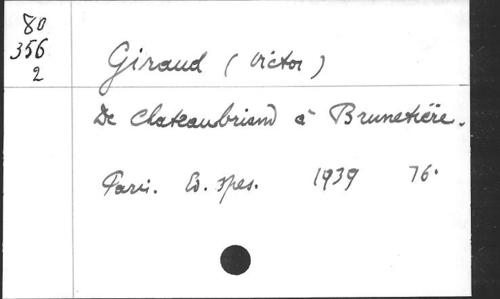 80
356
2
Giraud (Victor)
De Chateaubriand à Brunetière.
Paris. Ed. Spes. 1939 76.